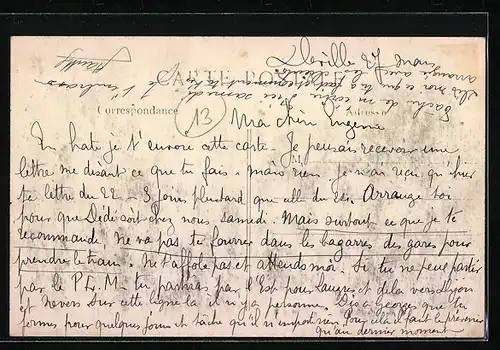 Deville 27 Mars
CARTE POSTALE
Correspondance
Adresse
13
Ma chère Eugénie
En hate je t'envoie cette carte. Je pensais recevoir une
lettre me disant ce que tu fais. mais rien je n'ai reçu qu'hier
ta lettre du 22 - 3 jours plus tard que celle du 22. Arrange toi
pour que Dédé soit chez nous samedi. Mais surtout ce que je te
recommande, ne va pas te fourrer dans la bagarre des gares pour
prendre le train. Ne t'affole pas et attends moi. Si tu ne peux partir
par le P.L.M. tu partiras par l'Est pour Langres et de la vers Lyon
et Nevers sur cette ligne la il n'y a personne. Dis a Georges que tu
fermes pour quelques jours et tâche qu'il n'
Pour cela il faut le prévenir
qu'au dernier moment
je t'embrasse